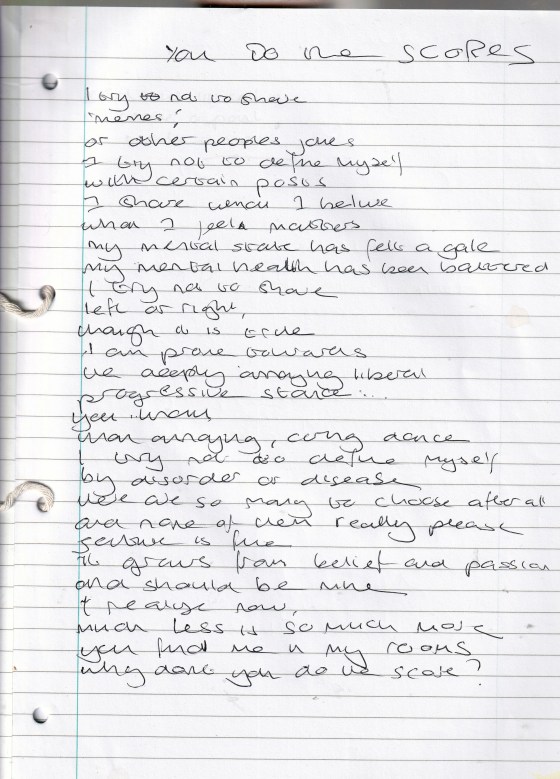 You Do the SCORES
I try to not to share
'memes',
or other peoples jokes
I try not to define myself
with certain posts
I share when I believe
what I feel matters
my mental state has felt a gale
my mental health has been battered
I try not to share
left or right,
though it is true
I am prone towards
the deeply annoying liberal
progressive stance....
you know
that annoying, caring dance
I try not to define myself
by disorder or disease
there are so many to choose after all
and none of them really please
is fine
It grows from belief and passion
and should be mine
I realise now,
much less is so much more
you find me in my rooms
why don't you do the score?